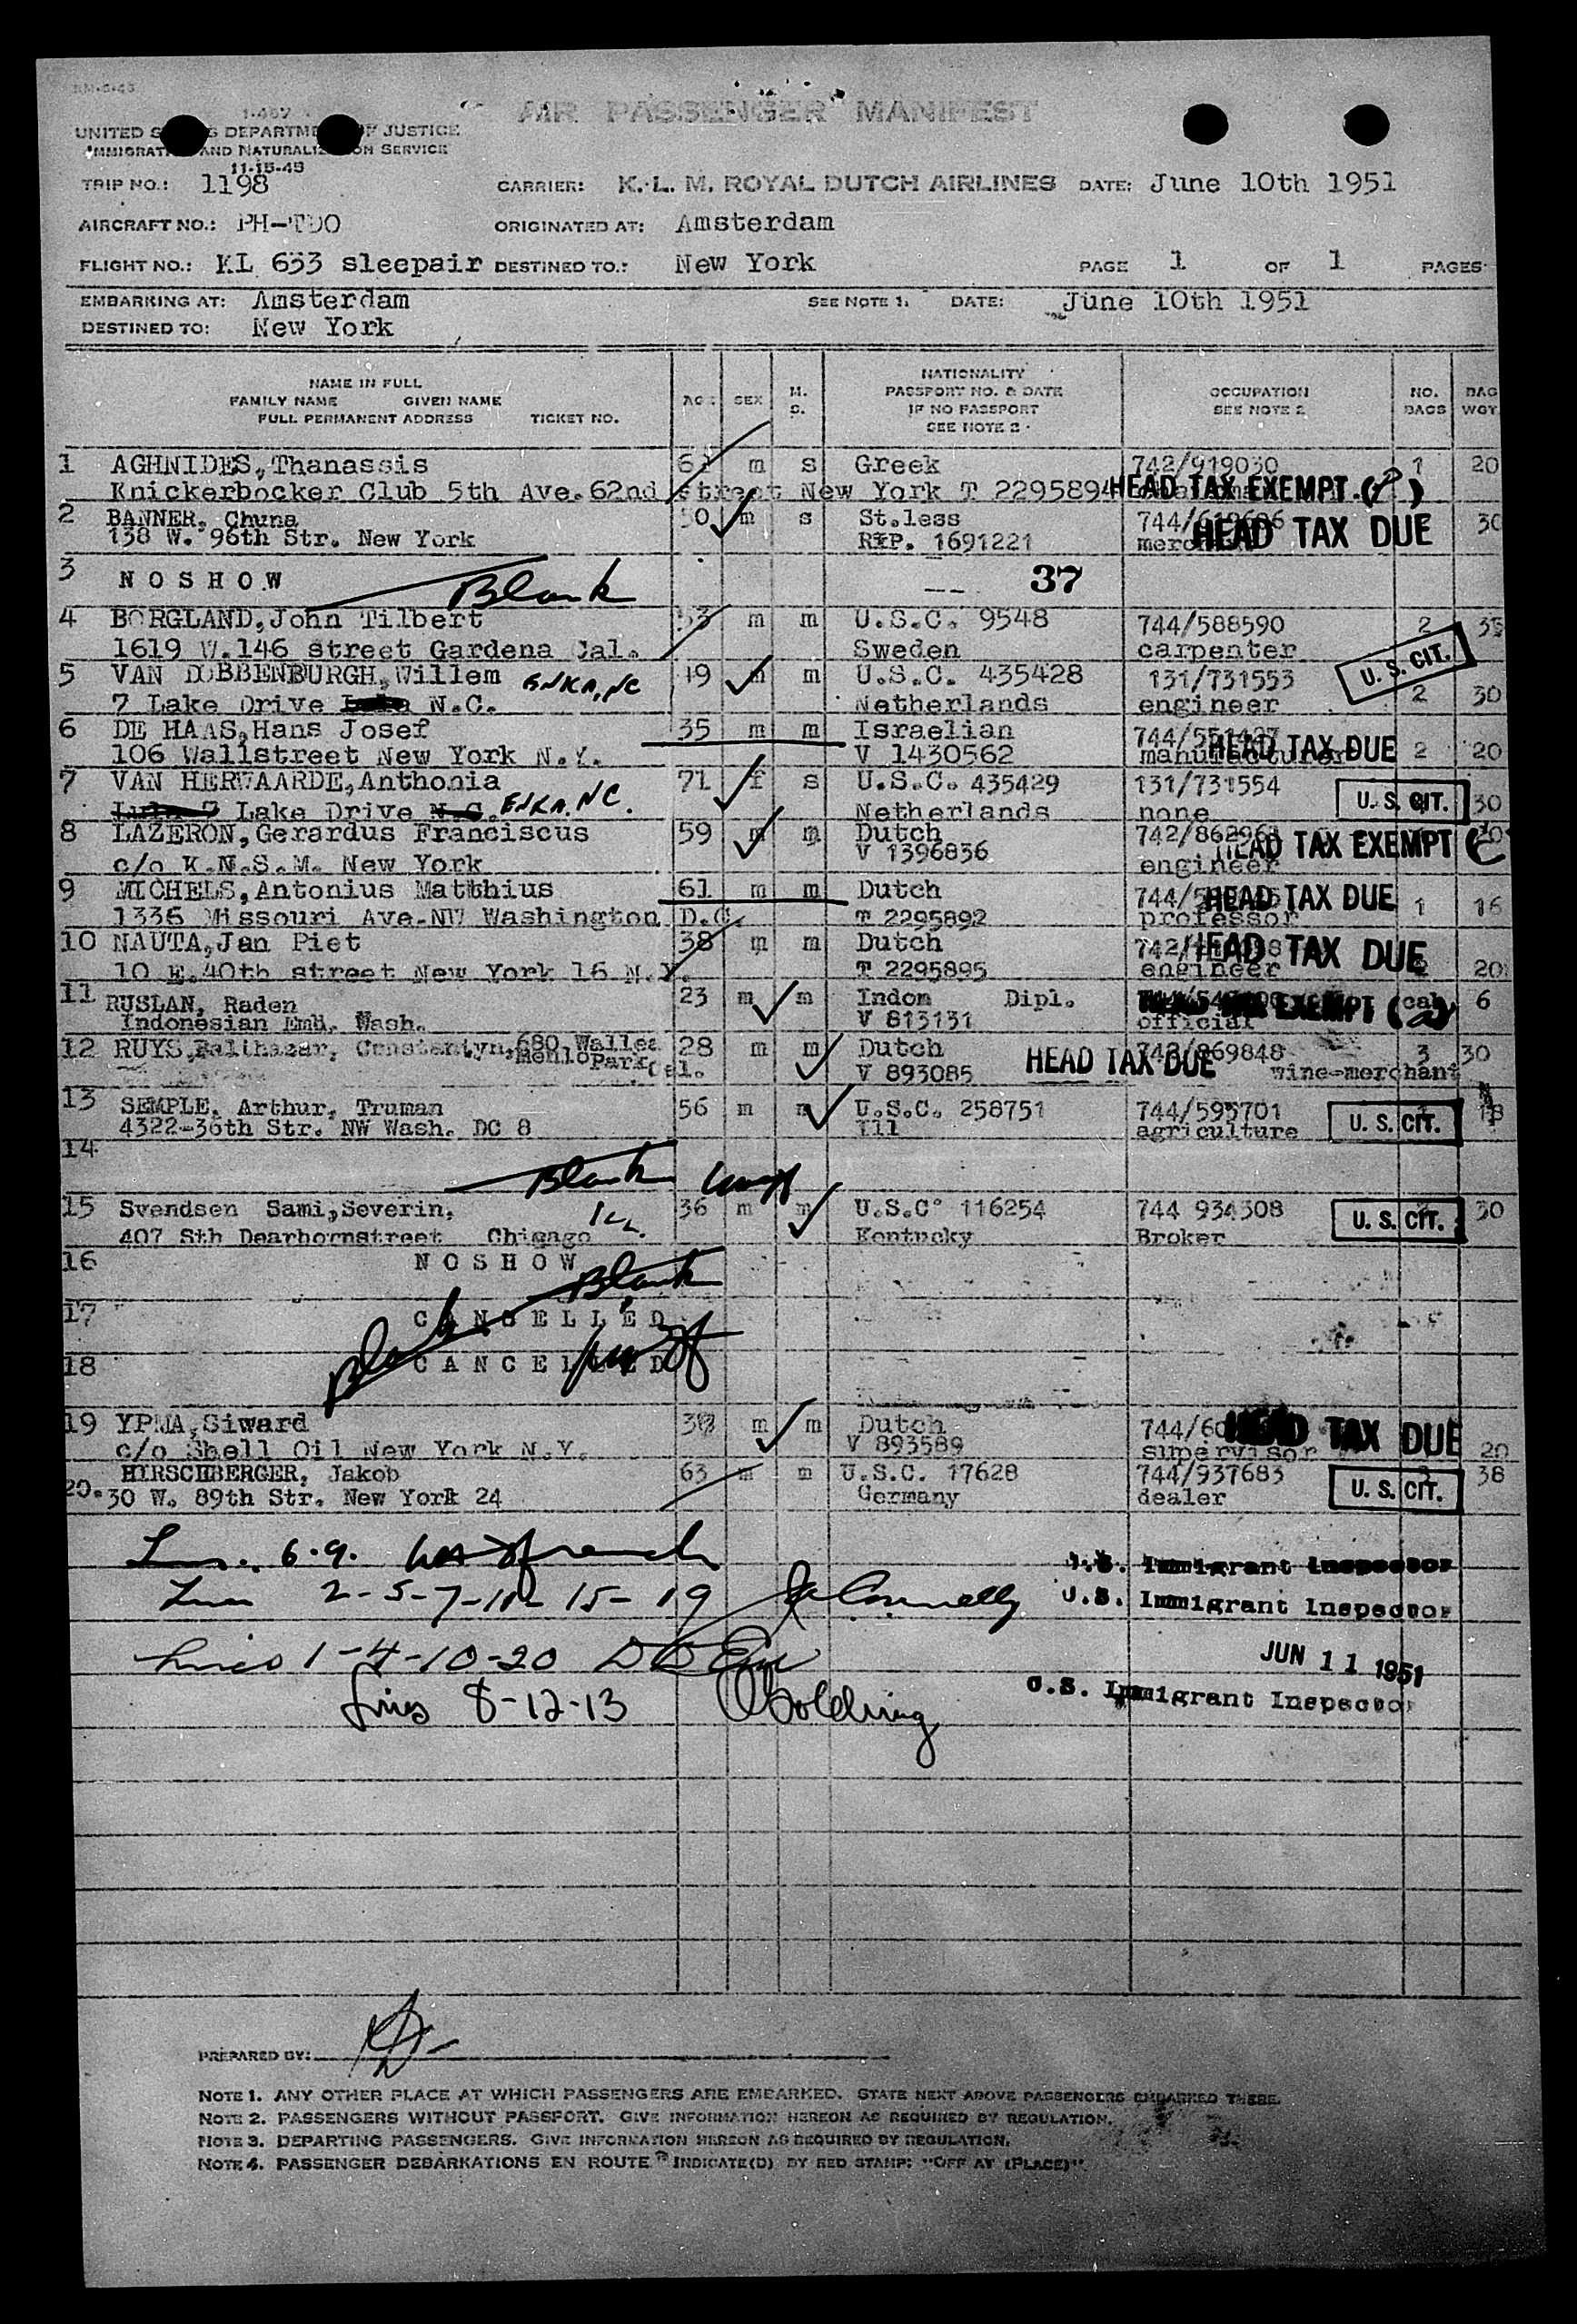 AIR PASSENGER MANIFEST
1-467
UNITED DEPARTMENT OF JUSTICE
IMMIGRATION AND NATURALIZATION SERVICE
11-15-45
TRIP NO.: 1198 CARRIER: K. L. M. ROYAL DUTCH AIRLINES DATE: June 10th 1951
AIRCRAFT NO.: ORIGINATED AT: Amsterdam
FLIGHT NO.: KL 633 sleepair DESTINED TO.: New York PAGE 1 OF 1 PAGES
EMBARKING AT: Amsterdam SEE NOTE 1. DATE: June 10th 1951
DESTINED TO: New York
NAME IN FULL
FAMILY NAME GIVEN NAME
FULL PERMANENT ADDRESS TICKET NO.
AGE SEX M. S.
NATIONALITY
PASSPORT NO. & DATE
IF NO PASSPORT
SEE NOTE 2
OCCUPATION
SEE NOTE 2
NO. BAGS
BAG WGT.
1 AGHNIDES, Thanassis m s Greek 742/919030 1 20
Knickerbocker Club 5th Ave. 62nd street New York T 2295894 HEAD TAX EXEMPT
2 BANNER, Chuna 50 m s St.less 30
138 W. 96th Str. New York 1691221 HEAD TAX DUE
3 NOSHOW Blank 37
4 BORGLAND, John Tilbert 53 m m U.S.C. 9548 744/588590 2
1619 W.146 street Gardena Cal. Sweden carpenter
5 VAN DOBBENBURGH, Willem ENKA, NC 49 m m U.S.C. 435428 131/731553 U. S. CIT.
7 Lake Drive N.C. Netherlands engineer 2 30
6 DE HAAS, Hans Josef 35 m m Israelian
106 Wallstreet New York N.Y. V 1430562 manufacturer HEAD TAX DUE 2 20
7 VAN HERWAARDE, Anthonia 71 f s U.S.C. 435429 131/731554 U. S. CIT. 30
Lake Drive N.C. ENKA. NC. Netherlands none
8 LAZERON, Gerardus Franciscus 59 m m Dutch HEAD TAX EXEMPT
c/o K.N.S.M. New York V 1396836 engineer
9 MICHELS, Antonius Matthius 61 m m Dutch HEAD TAX DUE 1 16
1336 Missouri Ave-NW Washington D.C. T 2295892 professor
10 NAUTA, Jan Piet 38 m m Dutch HEAD TAX DUE
10 E.40th street New York 16 N.Y. T 2295895 engineer 20
11 RUSLAN, Raden 23 m m Indon Dipl. 6
Indonesian Emb. Wash. V 813131 official EXEMPT
12 RUYS, Balthazar, Constantyn, 680 Wallea 28 m m Dutch 742/869848 3 30
Menlo Park Cal. V 893085 HEAD TAX DUE wine-merchant
13 SEMPLE, Arthur, Truman 56 m m U.S.C. 258751 744/595701 U. S. CIT. 18
4322-36th Str. NW Wash. DC 8 Ill agriculture
14 Blank
15 Svendsen Sami, Severin, 36 m m U.S.C° 116254 744 934308 U. S. CIT. 30
407 Sth Dearbornstreet Chigago Ill. Kentucky Broker
16 NOSHOW Blank
17 CANCELLED
18 Blank CANCELLED
19 YPMA, Siward m m Dutch HEAD TAX DUE
c/o Shell Oil New York N.Y. V 893589 supervisor 20
20. HIRSCHBERGER, Jakob 63 m m U.S.C. 17628 744/937683 U. S. CIT. 38
30 W. 89th Str. New York 24 Germany dealer
6.9.
U.S. Immigrant Inspector
2-5-7-11-15-19 U.S. Immigrant Inspector
Lines 1-4-10-20
JUN 11 1951
Lines 8-12-13 U.S. Immigrant Inspector
PREPARED BY:
NOTE 1. ANY OTHER PLACE AT WHICH PASSENGERS ARE EMBARKED. STATE NEXT ABOVE PASSENGERS EMBARKED THERE.
NOTE 2. PASSENGERS WITHOUT PASSPORT. GIVE INFORMATION HEREON AS REQUIRED BY REGULATION.
NOTE 3. DEPARTING PASSENGERS. GIVE INFORMATION HEREON AS REQUIRED BY REGULATION.
NOTE 4. PASSENGER DEBARKATIONS EN ROUTE INDICATE(D) BY RED STAMP: "OFF AT (PLACE)"